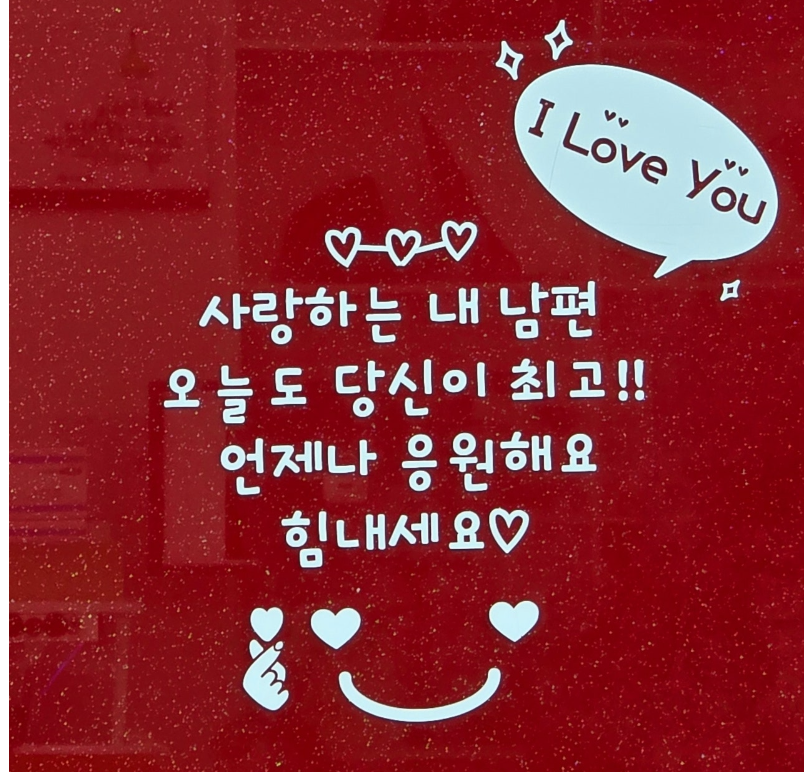 I Love You
사랑하는 내 남편
오늘도 당신이 최고!!
언제나 응원해요
힘내세요♡